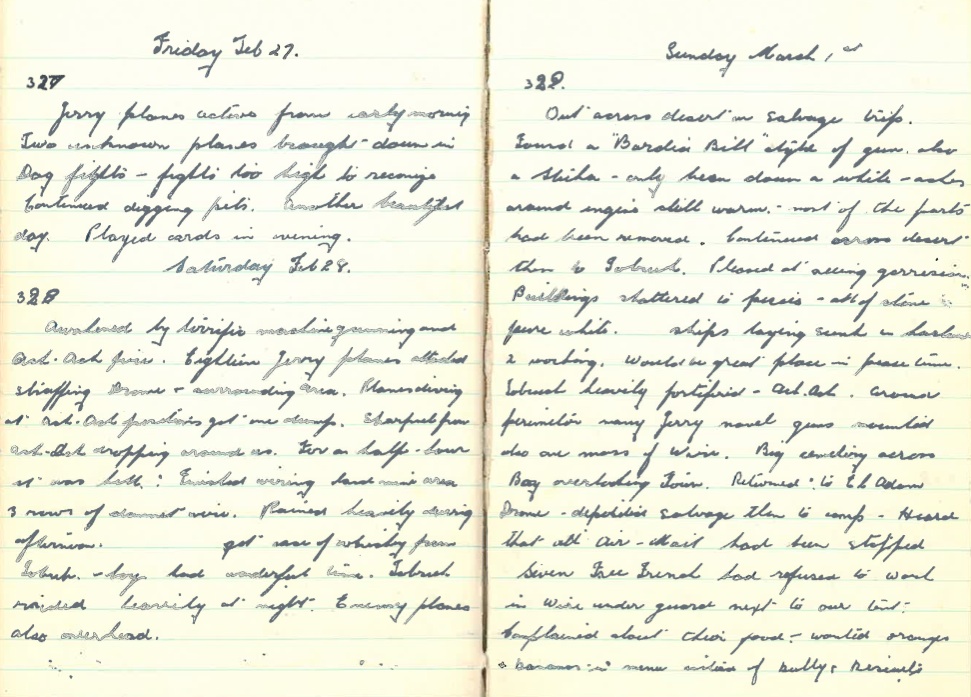 Friday Feb 27.
327
Jerry planes active from early morning
Two unknown planes brought down in
Dog fights - fights too high to reconize
Contenued digging pits. Another beautiful
day. Played cards in evening.
Saturday Feb 28.
328
Awakened by terrific machine gunning and
Ack-Ack fire. Eighteen Jerry planes attacked
straffing Drome + surrounding area. Planes diving
at Ack-Ack positions got one dump. Sharpnel from
Ack-Ack dropping around us. For a half-hour
it was hell. Finished wiring land mine area
3 rows of dannet wire. Rained heavily during
afternoon. got case of whisky from
Tobruk. - boys had wonderful time. Tobruk
raided heavily at night. Enemy planes
also overhead.
Sunday March 1st
329.
Out across desert on salvage trip.
Found a "Bardia Bill" style of gun. also
a Stuka - only been down a while - ashes
around engine still warm. - most of the parts
had been removed. Contenued across desert
then to Tobruk. Pleased at seeing garrision.
Buildings shattered to pieces - all of stone
pure white. ships laying sunk in harbour
2 working. Would be great place in peace time.
Tobruk heavily fortified - Ack.Ack. around
perimitor many Jerry navel guns mounted
also one mass of Wire. Big cemetery across
Bay overlooking Town. Returned to El Adem
Drome - deposited salvage then to camp - Heard
that all Air-Mail had been stopped
Seven Free French had refused to work
in Wire under guard next to our tent-
Complained about their food - wanted oranges
+ bananas in menu instead of bully & Biscuits